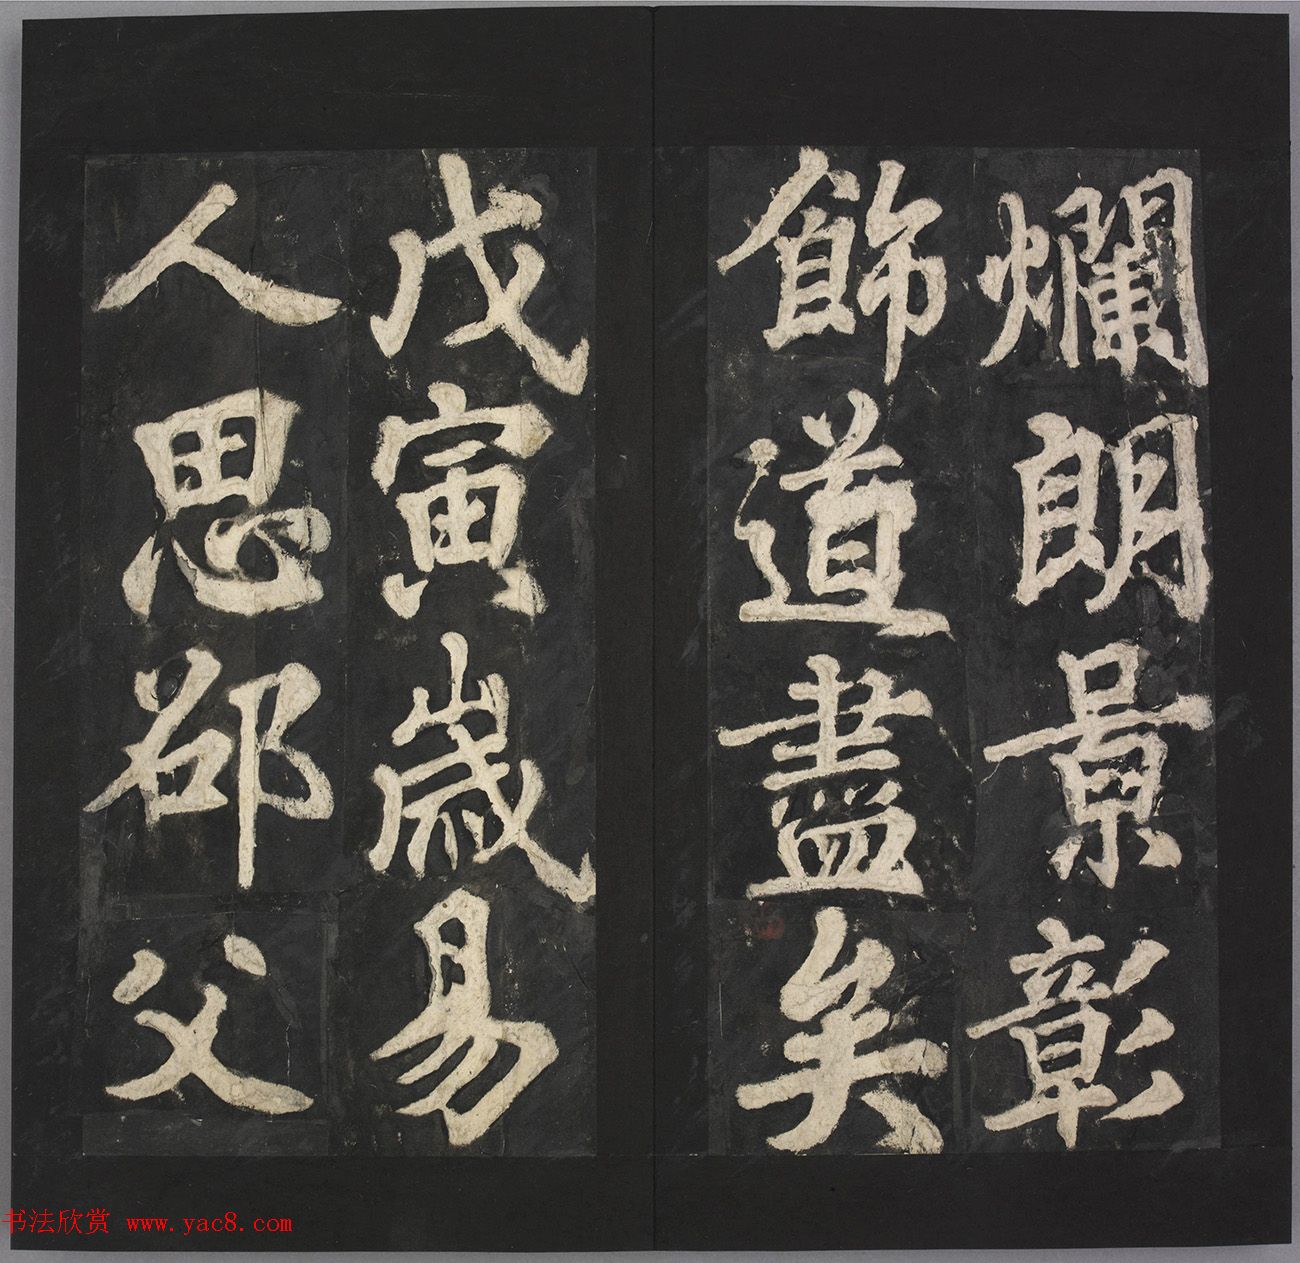 爛朗景彰
飾道盡矣
戊寅歲易
人思邵父
书法欣赏 www.yac8.com